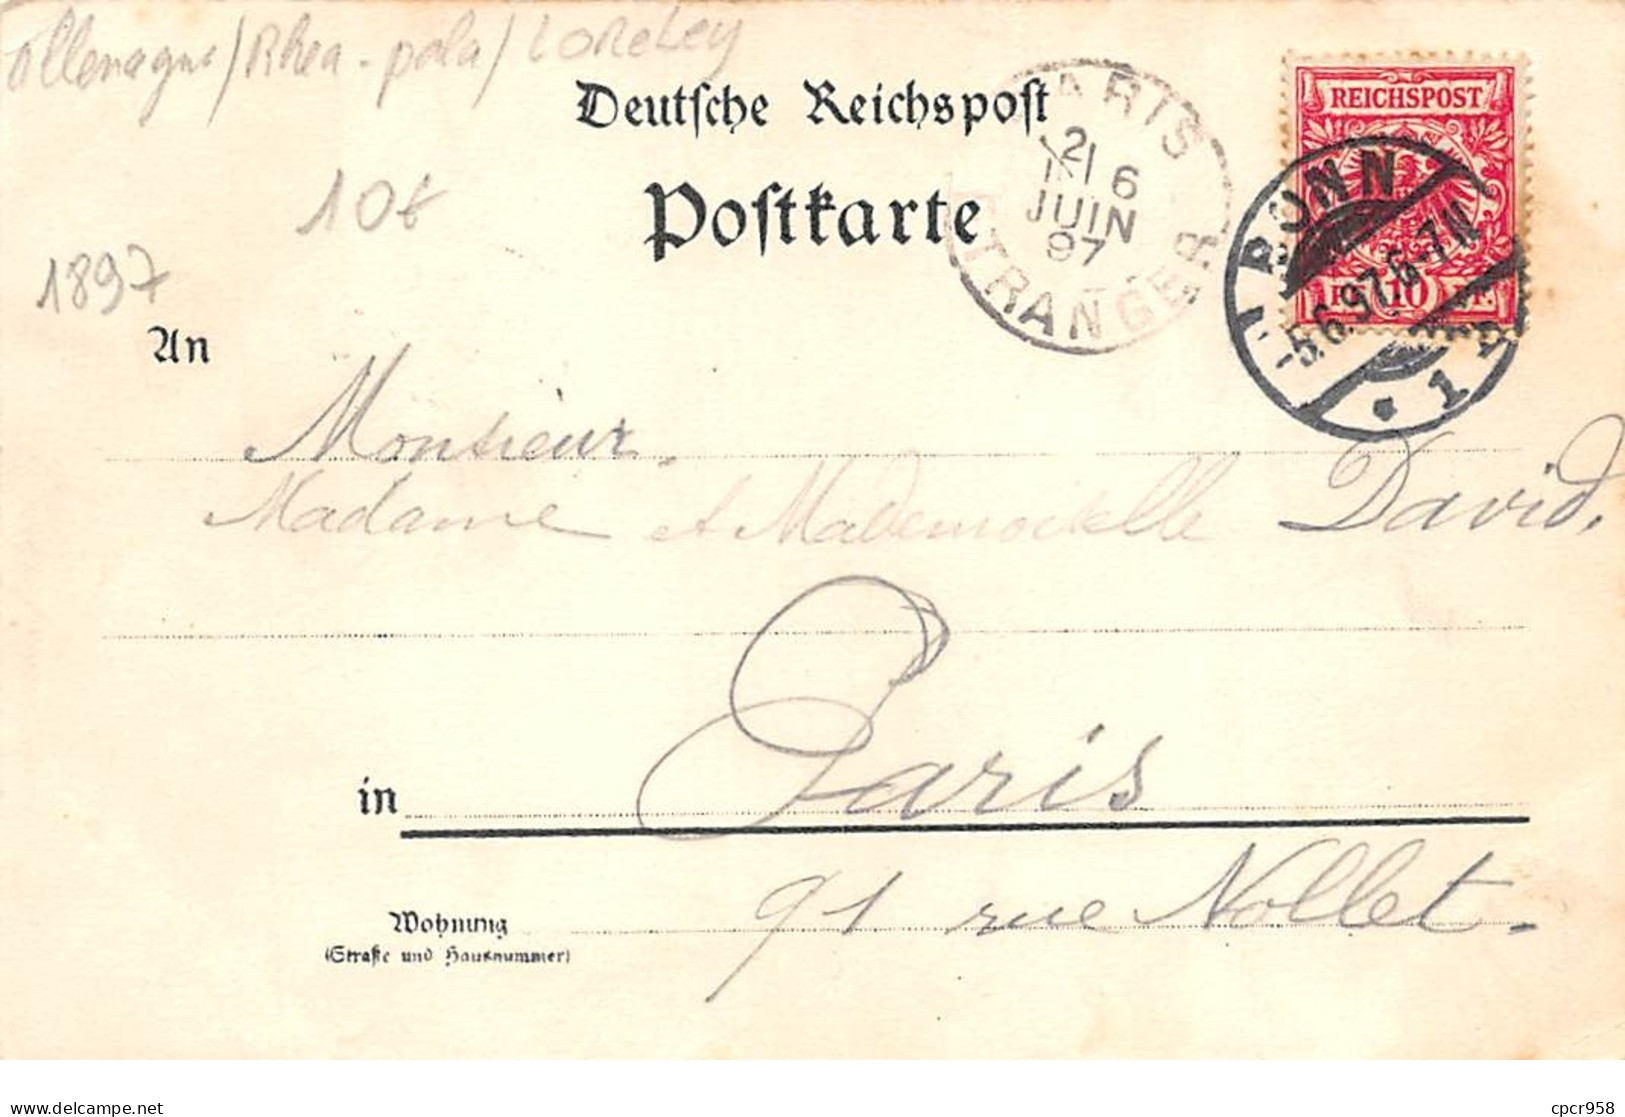 Allemagne / Rhea-pala / LORELEY
10€
1897
Deutsche Reichspost
Postkarte
PARIS
6
JUIN
97
ETRANGER
REICHSPOST
10 PF.
BONN
-5.6.97.6-7N
* 1
An
Monsieur.
Madame et Mademoiselle David.
in Paris
Wohnung
(Straße und Hausnummer)
91 rue Nollet.
delcampe.net
cpcr958